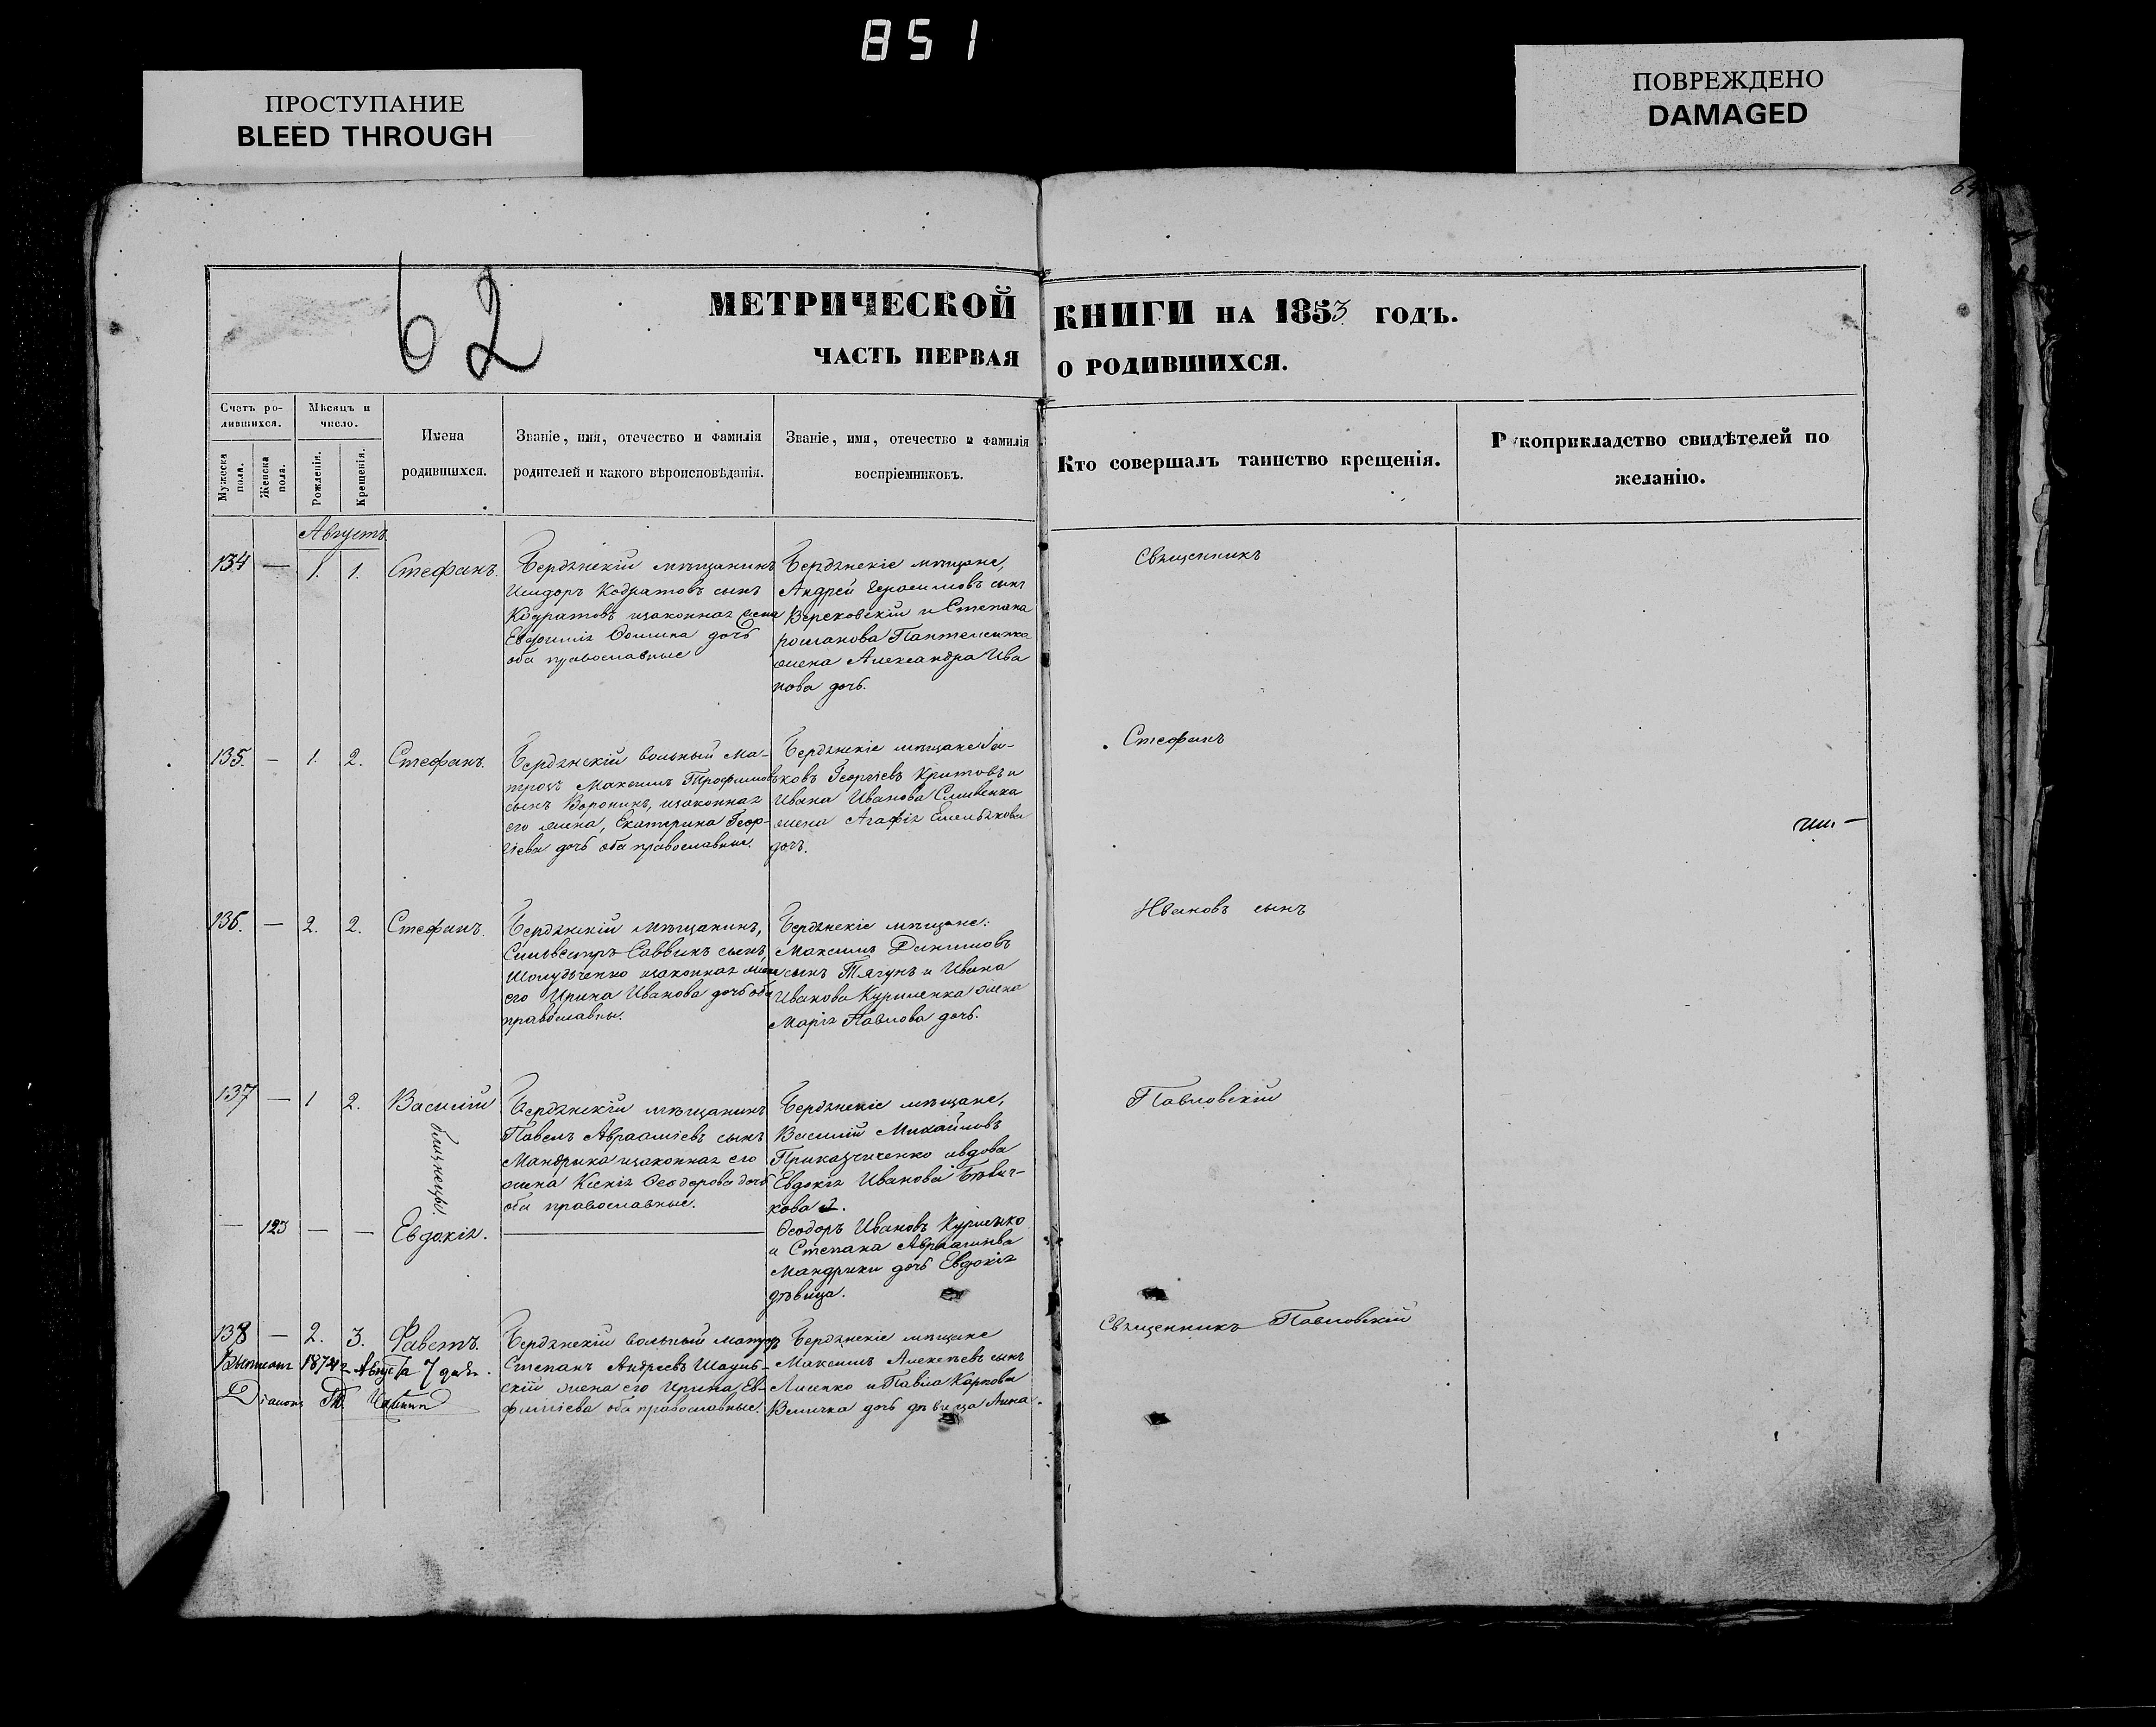 851
ПРОСТУПАНИЕ
BLEED THROUGH
ПОВРЕЖДЕНО
DAMAGED
62
МЕТРИЧЕСКОЙ КНИГИ НА 1853 ГОДЪ.
ЧАСТЬ ПЕРВАЯ О РОДИВШИХСЯ.
Счетъ ро-
дившихся.
Мужеска пола.
Женска пола.
Мѣсяцъ и
число.
Рожденія.
Крещенія.
Имена
родившихся.
Званіе, имя, отечество и фамилія
родителей и какого вѣроисповѣданія.
Званіе, имя, отечество и фамилія
воспріемниковъ.
Кто совершалъ таинство крещенія.
Рукоприкладство свидѣтелей по
желанію.
Августъ
134 — 1. 1. Стефанъ.
Бердянскій мѣщанинъ
Исидоръ Кодратовъ сынъ
Кодратовъ изаконная жена
Евфимія Ѳомина дочь
оба православные
Бердянскіе мѣщане,
Андрей Герасимовъ сынъ
Верховскій и Степана
романова Пантелеенка
жена Александра Ива
нова дочь.
Священникъ
135. — 1. 2. Стефанъ.
Бердянскій вольный ма-
тросъ Максимъ Трофимовъ
сынъ Воронинъ, изаконная
его жена, Екатерина Геор-
гіева дочь оба православные.
Бердянскіе мѣщане Іа-
ковъ Георгіевъ Критовъ и
Ивана Иванова Сливенка
жена Агафія Емельянова
дочь.
Стефанъ
136. — 2. 2. Стефанъ.
Бердянскій мѣщанинъ,
Сильвестръ Саввинъ сынъ,
Шолудченко изаконная жена
его Ирина Иванова дочь оба
православны.
Бердянскіе мѣщане:
Максимъ Даниловъ
сынъ Тягунъ и Ивана
Иванова Куриленка жена
Марія Павлова дочь.
Ивановъ сынъ
137 — 1 2. Василій
близнецы.
Бердянскій мѣщанинъ
Павелъ Авраамiевъ сынъ
Мандрика изаконная его
жена Ксенія Ѳеодорова дочь
оба православные.
Бердянскіе мѣщане,
Василій Михайловъ
Приказчиченко ивдова
Евдокія Иванова
кова
Павловскій
— 123 — — Евдокія.
Ѳеодоръ Ивановъ Куриленко
и Степана Авраамiева
Мандрики дочь Евдокія
дѣвица.
138 — 2. 3. Фавстъ.
Бердянскій вольный матросъ
Степанъ Андреевъ
скій жена его Ирина Ев-
фиміева оба православные.
Бердянскіе мѣщане
Максимъ Алексѣевъ сынъ
Лисенко и Павла Карпова
Величка дочь дѣвица Анна.
Священникъ Павловскій
1874 г. Августа 7 дня.